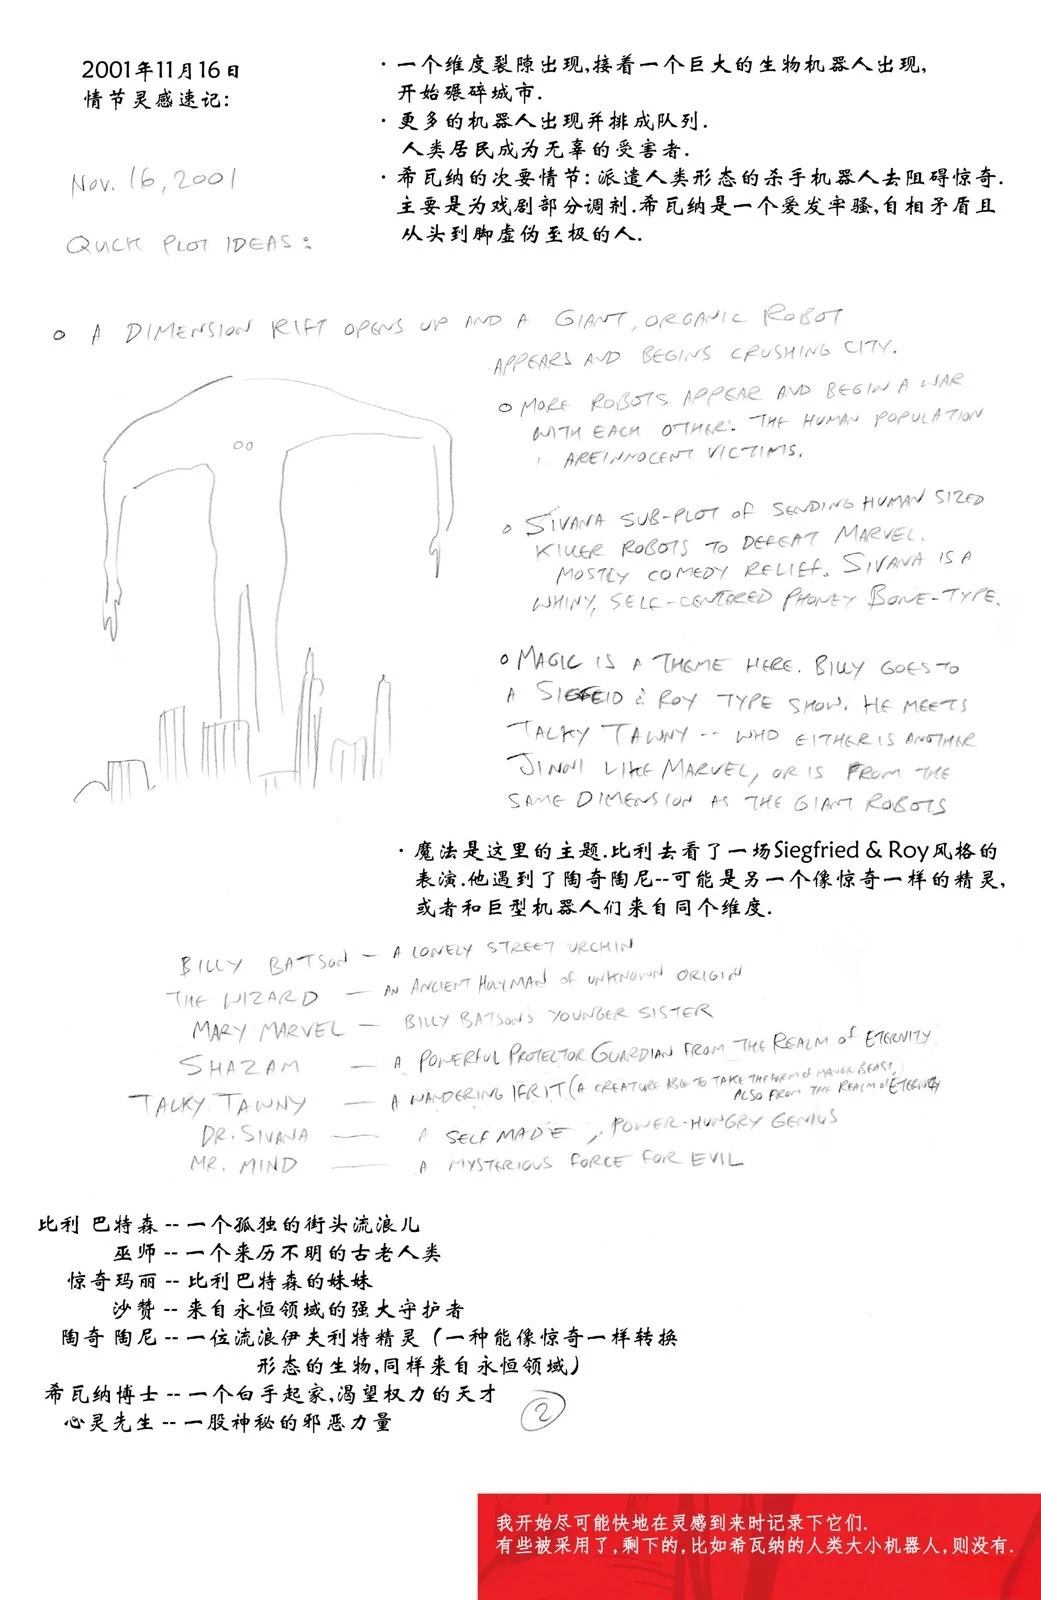 2001年11月16日
情节灵感速记:
· 一个维度裂隙出现,接着一个巨大的生物机器人出现,
开始碾碎城市.
· 更多的机器人出现并排成队列.
人类居民成为无辜的受害者.
· 希瓦纳的次要情节: 派遣人类形态的杀手机器人去阻碍惊奇.
主要是为戏剧部分调剂.希瓦纳是一个爱发牢骚,自相矛盾且
从头到脚虚伪至极的人.
Nov. 16, 2001
QUICK PLOT IDEAS:
o A DIMENSION RIFT OPENS UP AND A GIANT, ORGANIC ROBOT
APPEARS AND BEGINS CRUSHING CITY.
o MORE ROBOTS APPEAR AND BEGIN A WAR
WITH EACH OTHER. THE HUMAN POPULATION
ARE INNOCENT VICTIMS.
o SIVANA SUB-PLOT OF SENDING HUMAN SIZED
KILLER ROBOTS TO DEFEAT MARVEL.
MOSTLY COMEDY RELIEF. SIVANA IS A
WHINY, SELF-CENTERED PHONEY BONE-TYPE.
o MAGIC IS A THEME HERE. BILLY GOES TO
A & ROY TYPE SHOW. HE MEETS
TALKY TAWNY -- WHO EITHER IS ANOTHER
JINNI LIKE MARVEL, OR IS FROM THE
SAME DIMENSION AS THE GIANT ROBOTS
· 魔法是这里的主题.比利去看了一场Siegfried & Roy风格的
表演.他遇到了陶奇陶尼--可能是另一个像惊奇一样的精灵,
或者和巨型机器人们来自同个维度.
BILLY BATSON — A LONELY STREET URCHIN
THE WIZARD — AN ANCIENT HOLYMAN OF UNKNOWN ORIGIN
MARY MARVEL — BILLY BATSON'S YOUNGER SISTER
SHAZAM — A POWERFUL PROTECTOR GUARDIAN FROM THE REALM OF ETERNITY
TALKY TAWNY — A WANDERING IFRIT (A CREATURE ABLE TO TAKE THE FORM OF MAN OR BEAST,
ALSO FROM THE REALM OF ETERNITY
DR. SIVANA — A SELF MADE, POWER-HUNGRY GENIUS
MR. MIND — A MYSTERIOUS FORCE FOR EVIL
比利 巴特森 -- 一个孤独的街头流浪儿
巫师 -- 一个来历不明的古老人类
惊奇玛丽 -- 比利巴特森的妹妹
沙赞 -- 来自永恒领域的强大守护者
陶奇 陶尼 -- 一位流浪伊夫利特精灵（一种能像惊奇一样转换
形态的生物,同样来自永恒领域）
希瓦纳博士 -- 一个白手起家,渴望权力的天才
心灵先生 -- 一股神秘的邪恶力量
2
我开始尽可能快地在灵感到来时记录下它们.
有些被采用了,剩下的,比如希瓦纳的人类大小机器人,则没有.